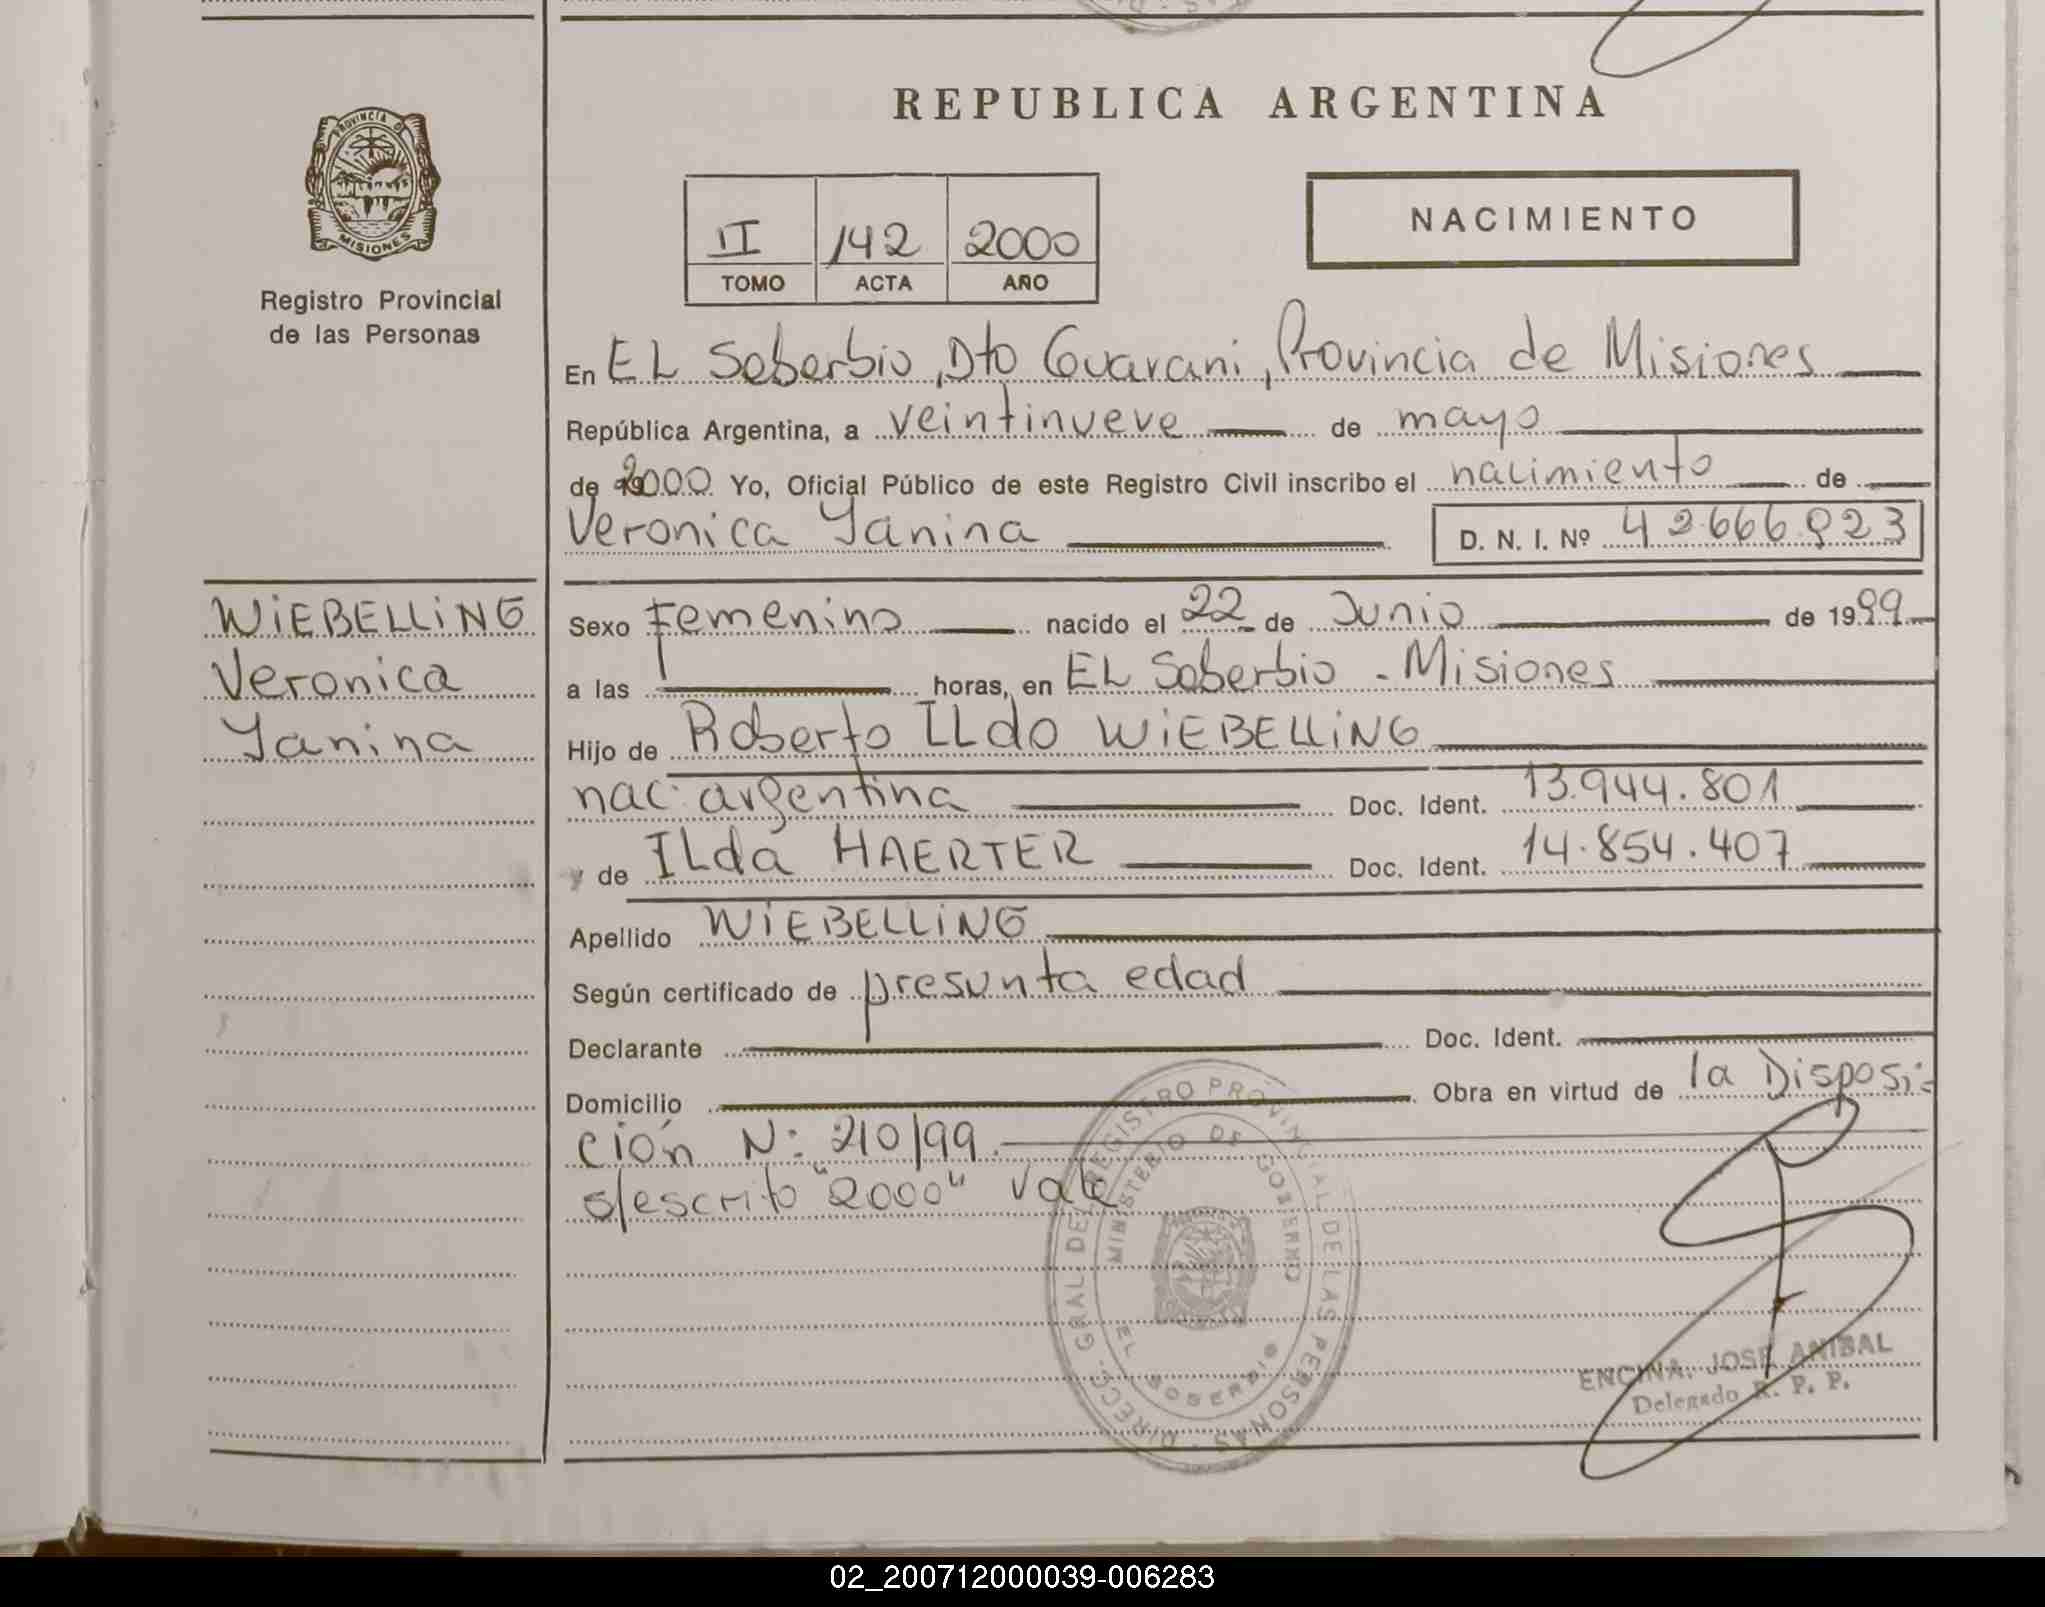 REPUBLICA ARGENTINA
PROVINCIA DE
MISIONES
Registro Provincial
de las Personas
II 142 2000
TOMO ACTA AÑO
NACIMIENTO
En EL Soberbio, Dto Guarani, Provincia de Misiones
República Argentina, a veintinueve de mayo
de 2000 Yo, Oficial Público de este Registro Civil inscribo el nacimiento de
Veronica Yanina D. N. I. Nº 42.666.923
WIEBELLING
Veronica
Yanina
Sexo Femenino nacido el 22 de Junio de 1999
a las horas, en EL Soberbio - Misiones
Hijo de Roberto ILdo WIEBELLING
nac. argentina Doc. Ident. 13.944.801
y de ILda HAERTER Doc. Ident. 14.854.407
Apellido WIEBELLING
Según certificado de presunta edad
Declarante Doc. Ident.
Domicilio Obra en virtud de la Disposi-
ción N: 210/99.
s/escrito "2000" vale
DIRECC. GRAL DEL REGISTRO PROVINCIAL DE LAS PERSONAS
MINISTERIO DE GOBIERNO
EL SOBERBIO
ENCINA, JOSE ANIBAL
Delegado R. P. P.
02_200712000039-006283